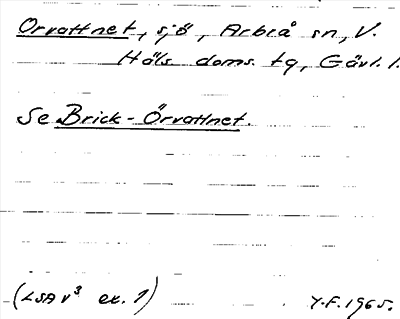 Orvattnet, sjö, Arbrå sn, V.
Häls. doms. tg, Gävl. l.
Se Brick-Örvattnet.
(LSA v³ ex. 1) Y.F. 1965.